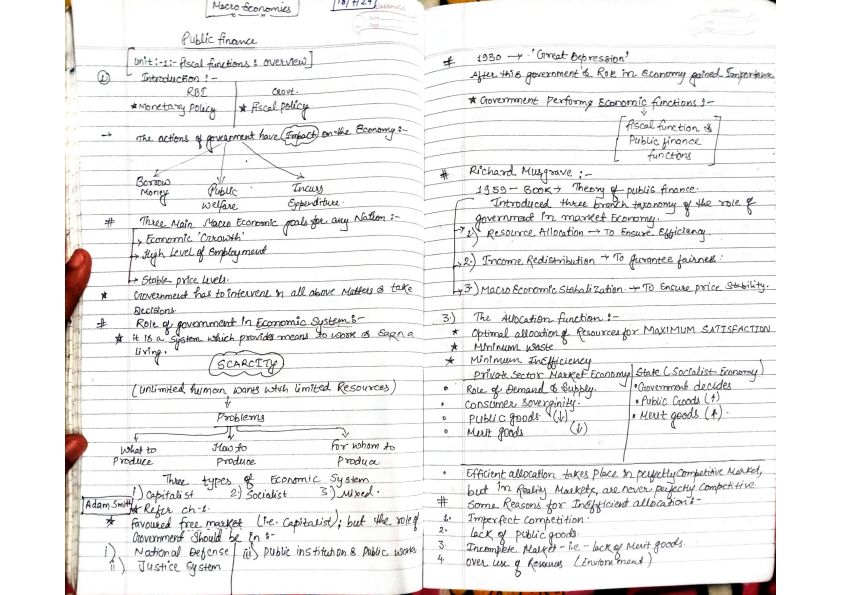 Macro Economics
18/7/24
classmate
Date
Page
Public finance
Unit:-1:- fiscal functions: overview
① Introduction :-
RBI Govt.
★ Monetary Policy ★ fiscal policy
→ The actions of government have Impact on the Economy:-
Borrow Money Public Welfare Incurs Expenditure.
# Three Main Macro Economic goals for any Nation:-
→ Economic 'Growth'
→ High Level of Employment
→ Stable price levels.
★ Government has to intervene in all above Matters & take
Decisions.
# Role of government in Economic System:-
★ it is a system which provides means to work & Earn a
living.
SCARCITY
(unlimited human wants with limited Resources)
Problems
What to Produce How to Produce For whom to Produce
Three types of Economic System
1) Capitalist 2) Socialist 3) Mixed.
Adam Smith ★ Refer ch-1.
★ Favoured free market (i.e. Capitalist); but the role of
Government Should be in :-
i) National Defense iii) Public institution & Public works
ii) Justice System
# 1930 → 'Great Depression'
After this government's Role in Economy gained Importance
★ Government Performs Economic functions :-
fiscal function &
Public finance
functions
# Richard Musgrave :-
1959 - Book → Theory of public finance.
Introduced three branch taxonomy of the role of
government in market Economy.
1) Resource Allocation → To Ensure Efficiency.
2) Income Redistribution → To gurantee fairness.
3) Macro Economic Stabalization → To Ensure price Stability.
3.) The Allocation function :-
★ Optimal allocation of Resources for MAXIMUM SATISFACTION
★ Minimum waste
★ Minimum Inefficiency
Private Sector Market Economy State (Socialist Economy)
• Role of Demand & Supply. • Government decides
• Consumer Soverginity. • Public Goods (↑)
• Public goods (↓) • Merit goods (↑).
• Merit goods (↓)
• Efficient allocation takes place in perfectly Competitive Market,
but in Reality Markets, are never perfectly competitive
# Some Reasons for Inefficient allocation :-
1. Imperfect Competition.
2. lack of Public goods.
3. Incomplete Market - i.e - lack of Merit goods.
4. Over use of Resources (Enviornment)